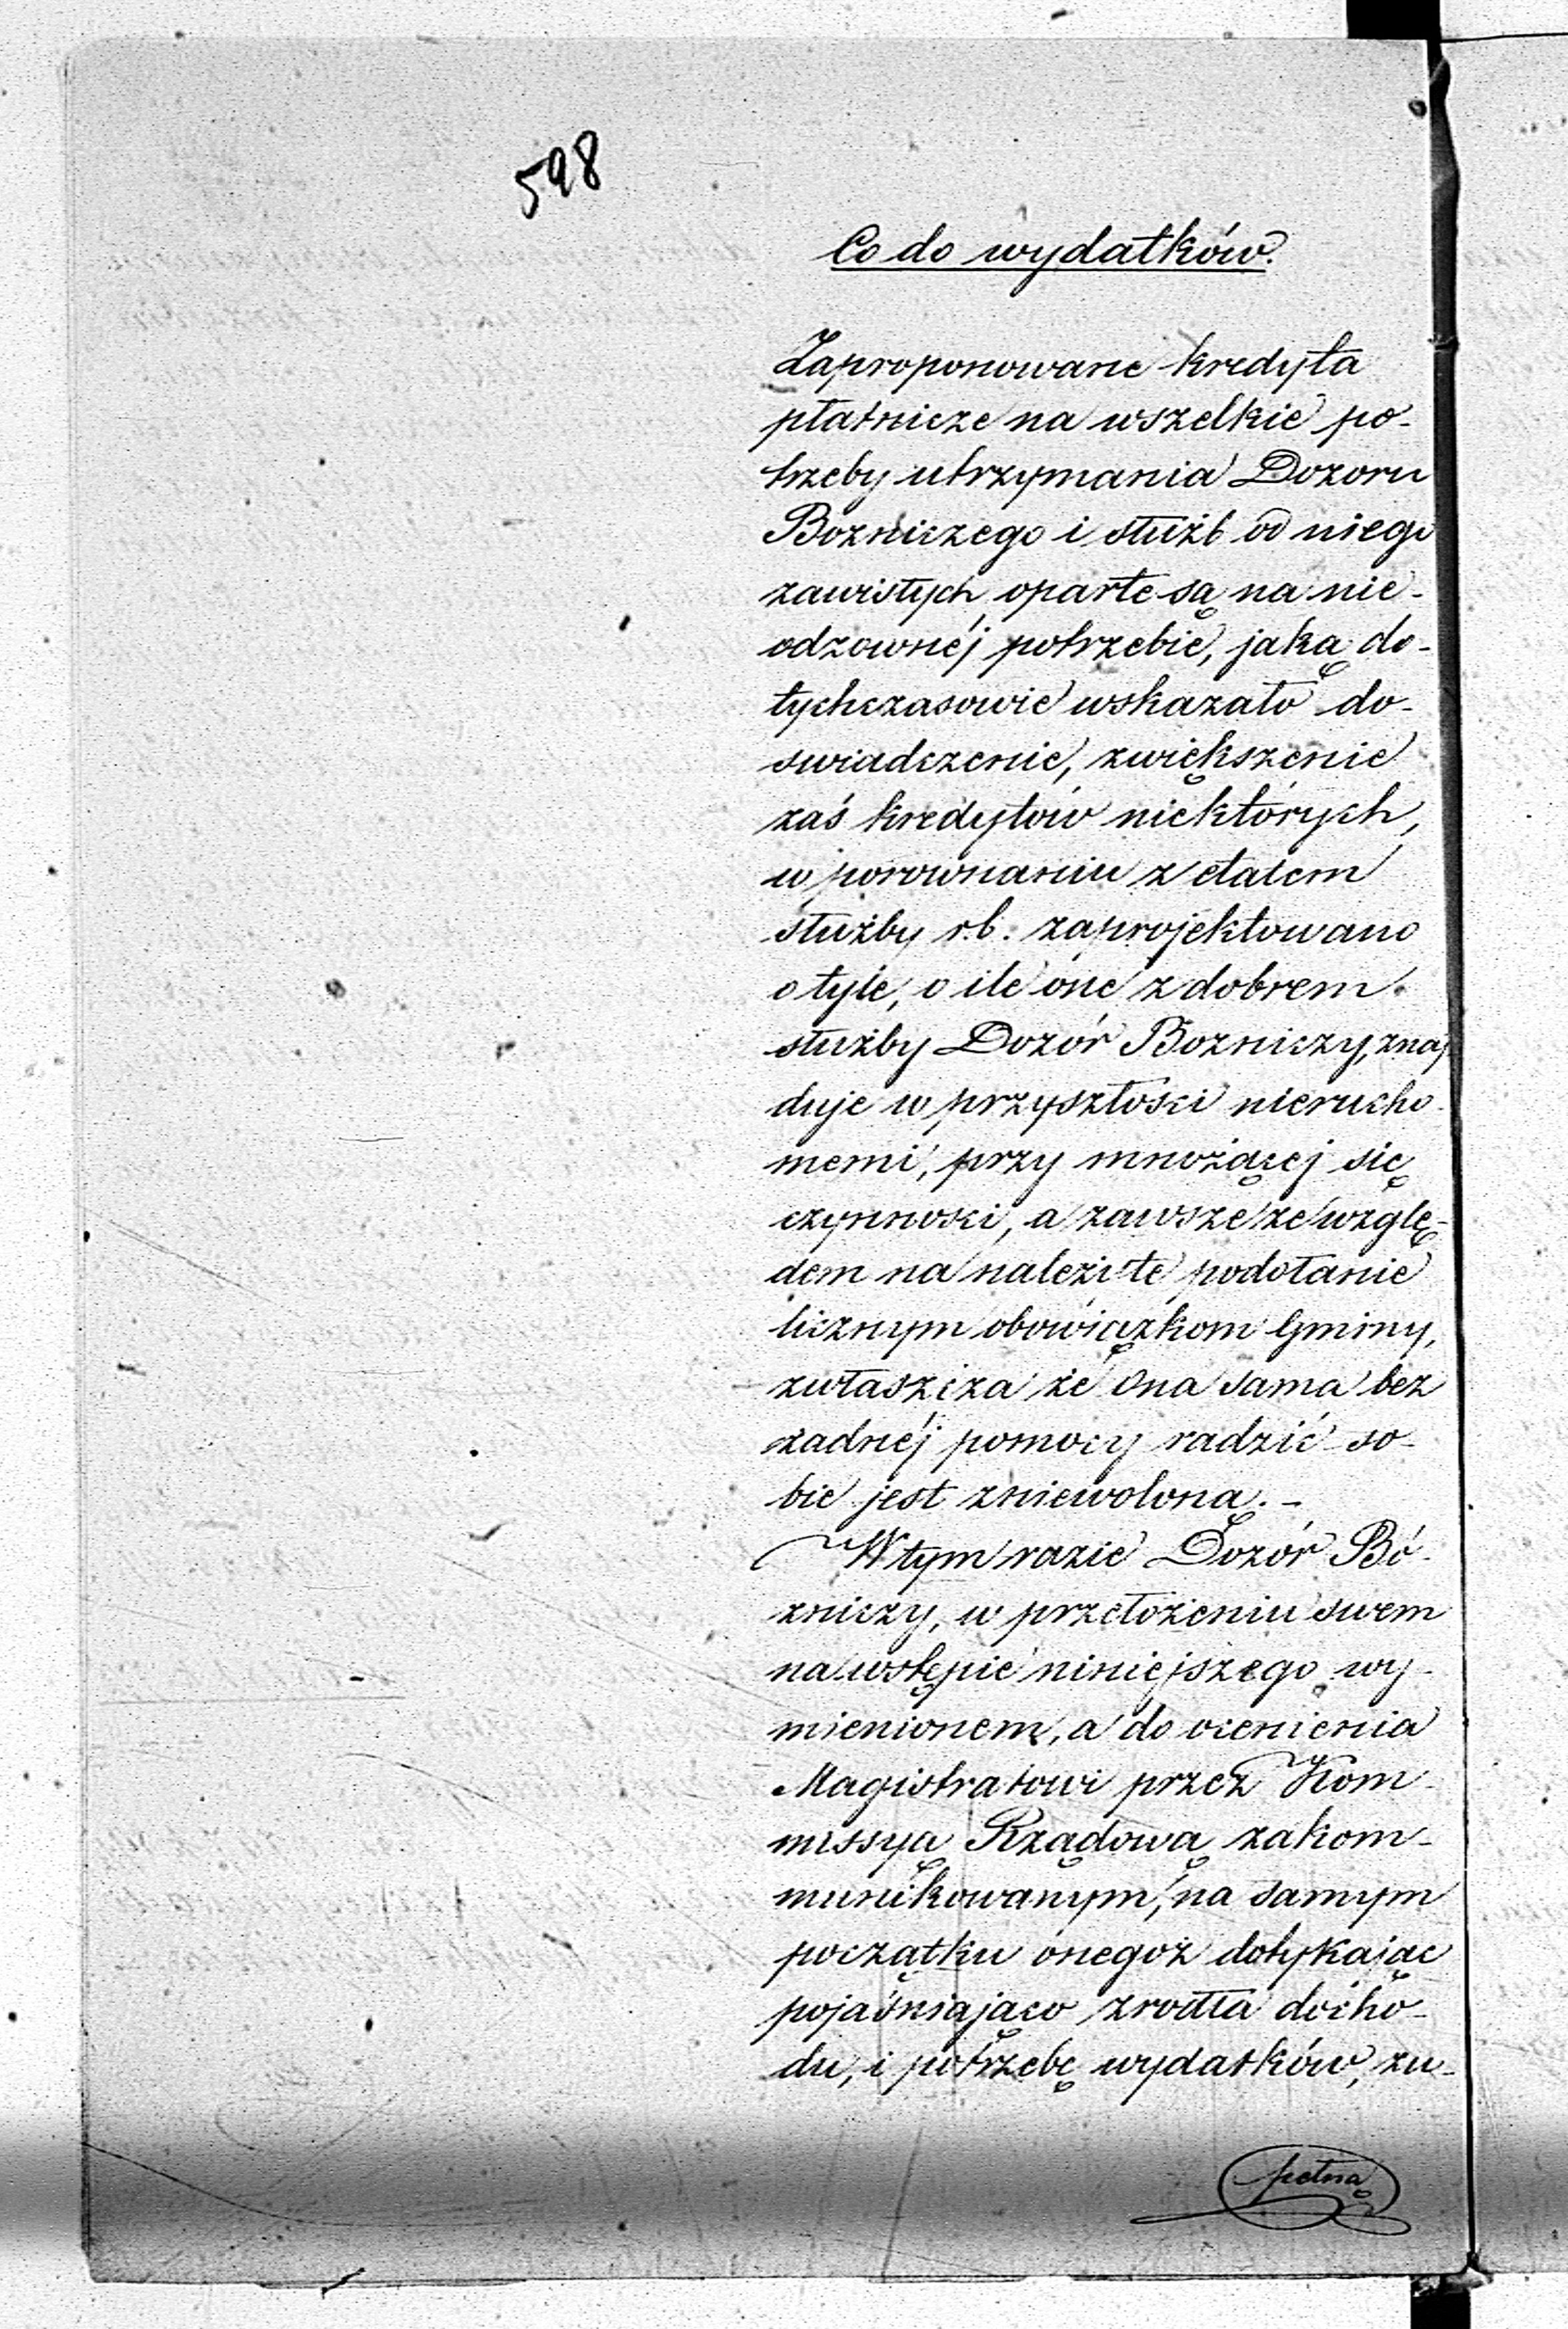 598
Co do wydatków.
Zaproponowane kredyta
płatnicze na wszelkie po-
trzeby utrzymania Dozoru
Bozniczego i służb od niego
zawisłych, oparte są na nie-
odzownéj potrzebie, jaką do-
tychczasowie wskazało do-
swiadczenie, zwiększenie
zaś kredytów niektórych,
w porownaniu z etatem
służby r.b. zaprojektowano
o tyle, o ile one z dobrem
służby Dozór Bozniczy, znaj
duje w przyszłosci nierucho-
memi, przy mnożącej się
czynnosci, a zawsze ze wzglę-
dem na należyte podołanie
licznym obowiązkom Gminy,
zwłaszcza że Ona sama bez
żadnéj pomocy radzić so-
bie jest zniewolona. -
W tym razie Dozór Bó-
zniczy, w przełożeniu swem
na wstępie niniejszego wy-
mienionem, a do ocenienia
Magistratowi przez Kom-
missyą Rządową zakom-
munikowanym, na samym
początku onegoż dotykając
pojaśniająco zrodła docho-
du, i potrzebę wydatków, zu-
pełną